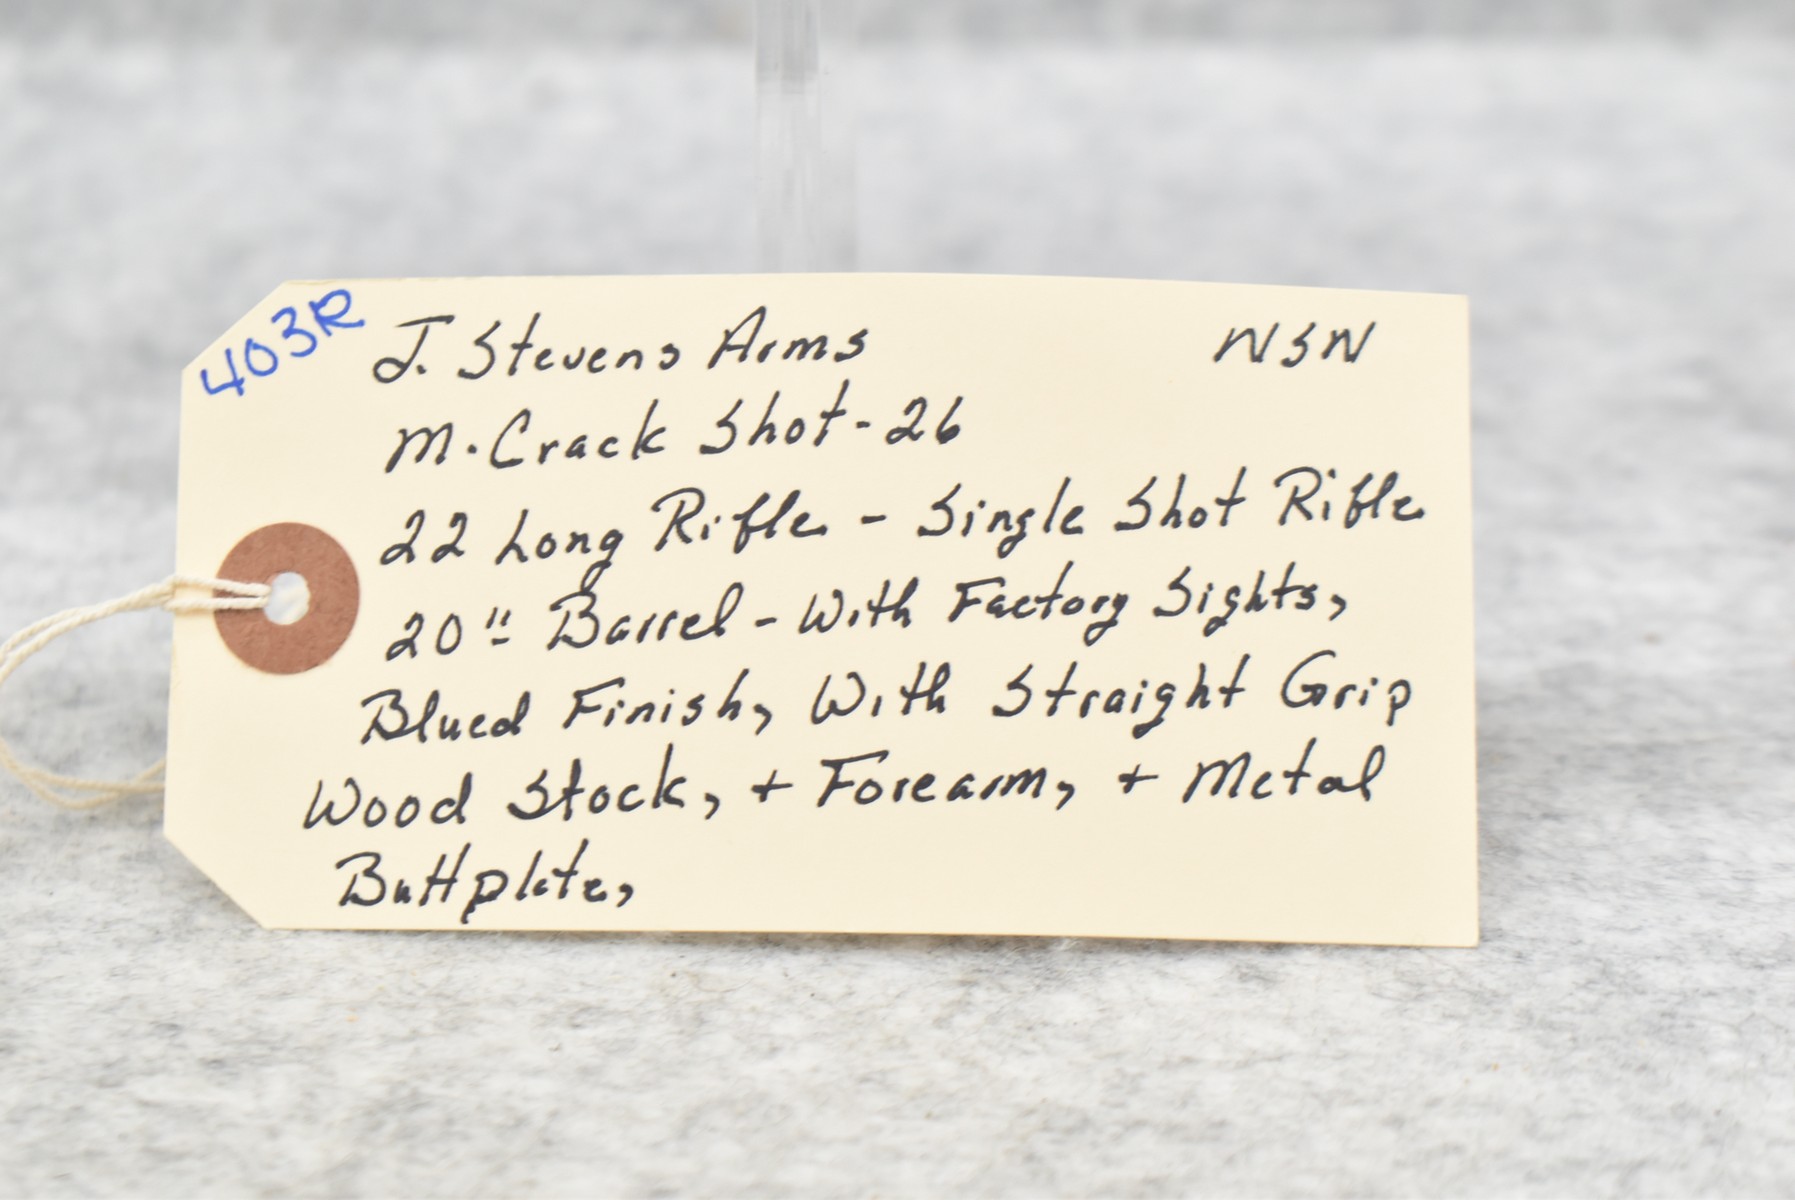 403R
J. Stevens Arms NSN
M. Crack Shot - 26
22 Long Rifle - Single Shot Rifle
20" Barrel - With Factory Sights,
Blued Finish, With Straight Grip
Wood Stock, + Forearm, + Metal
Buttplate,